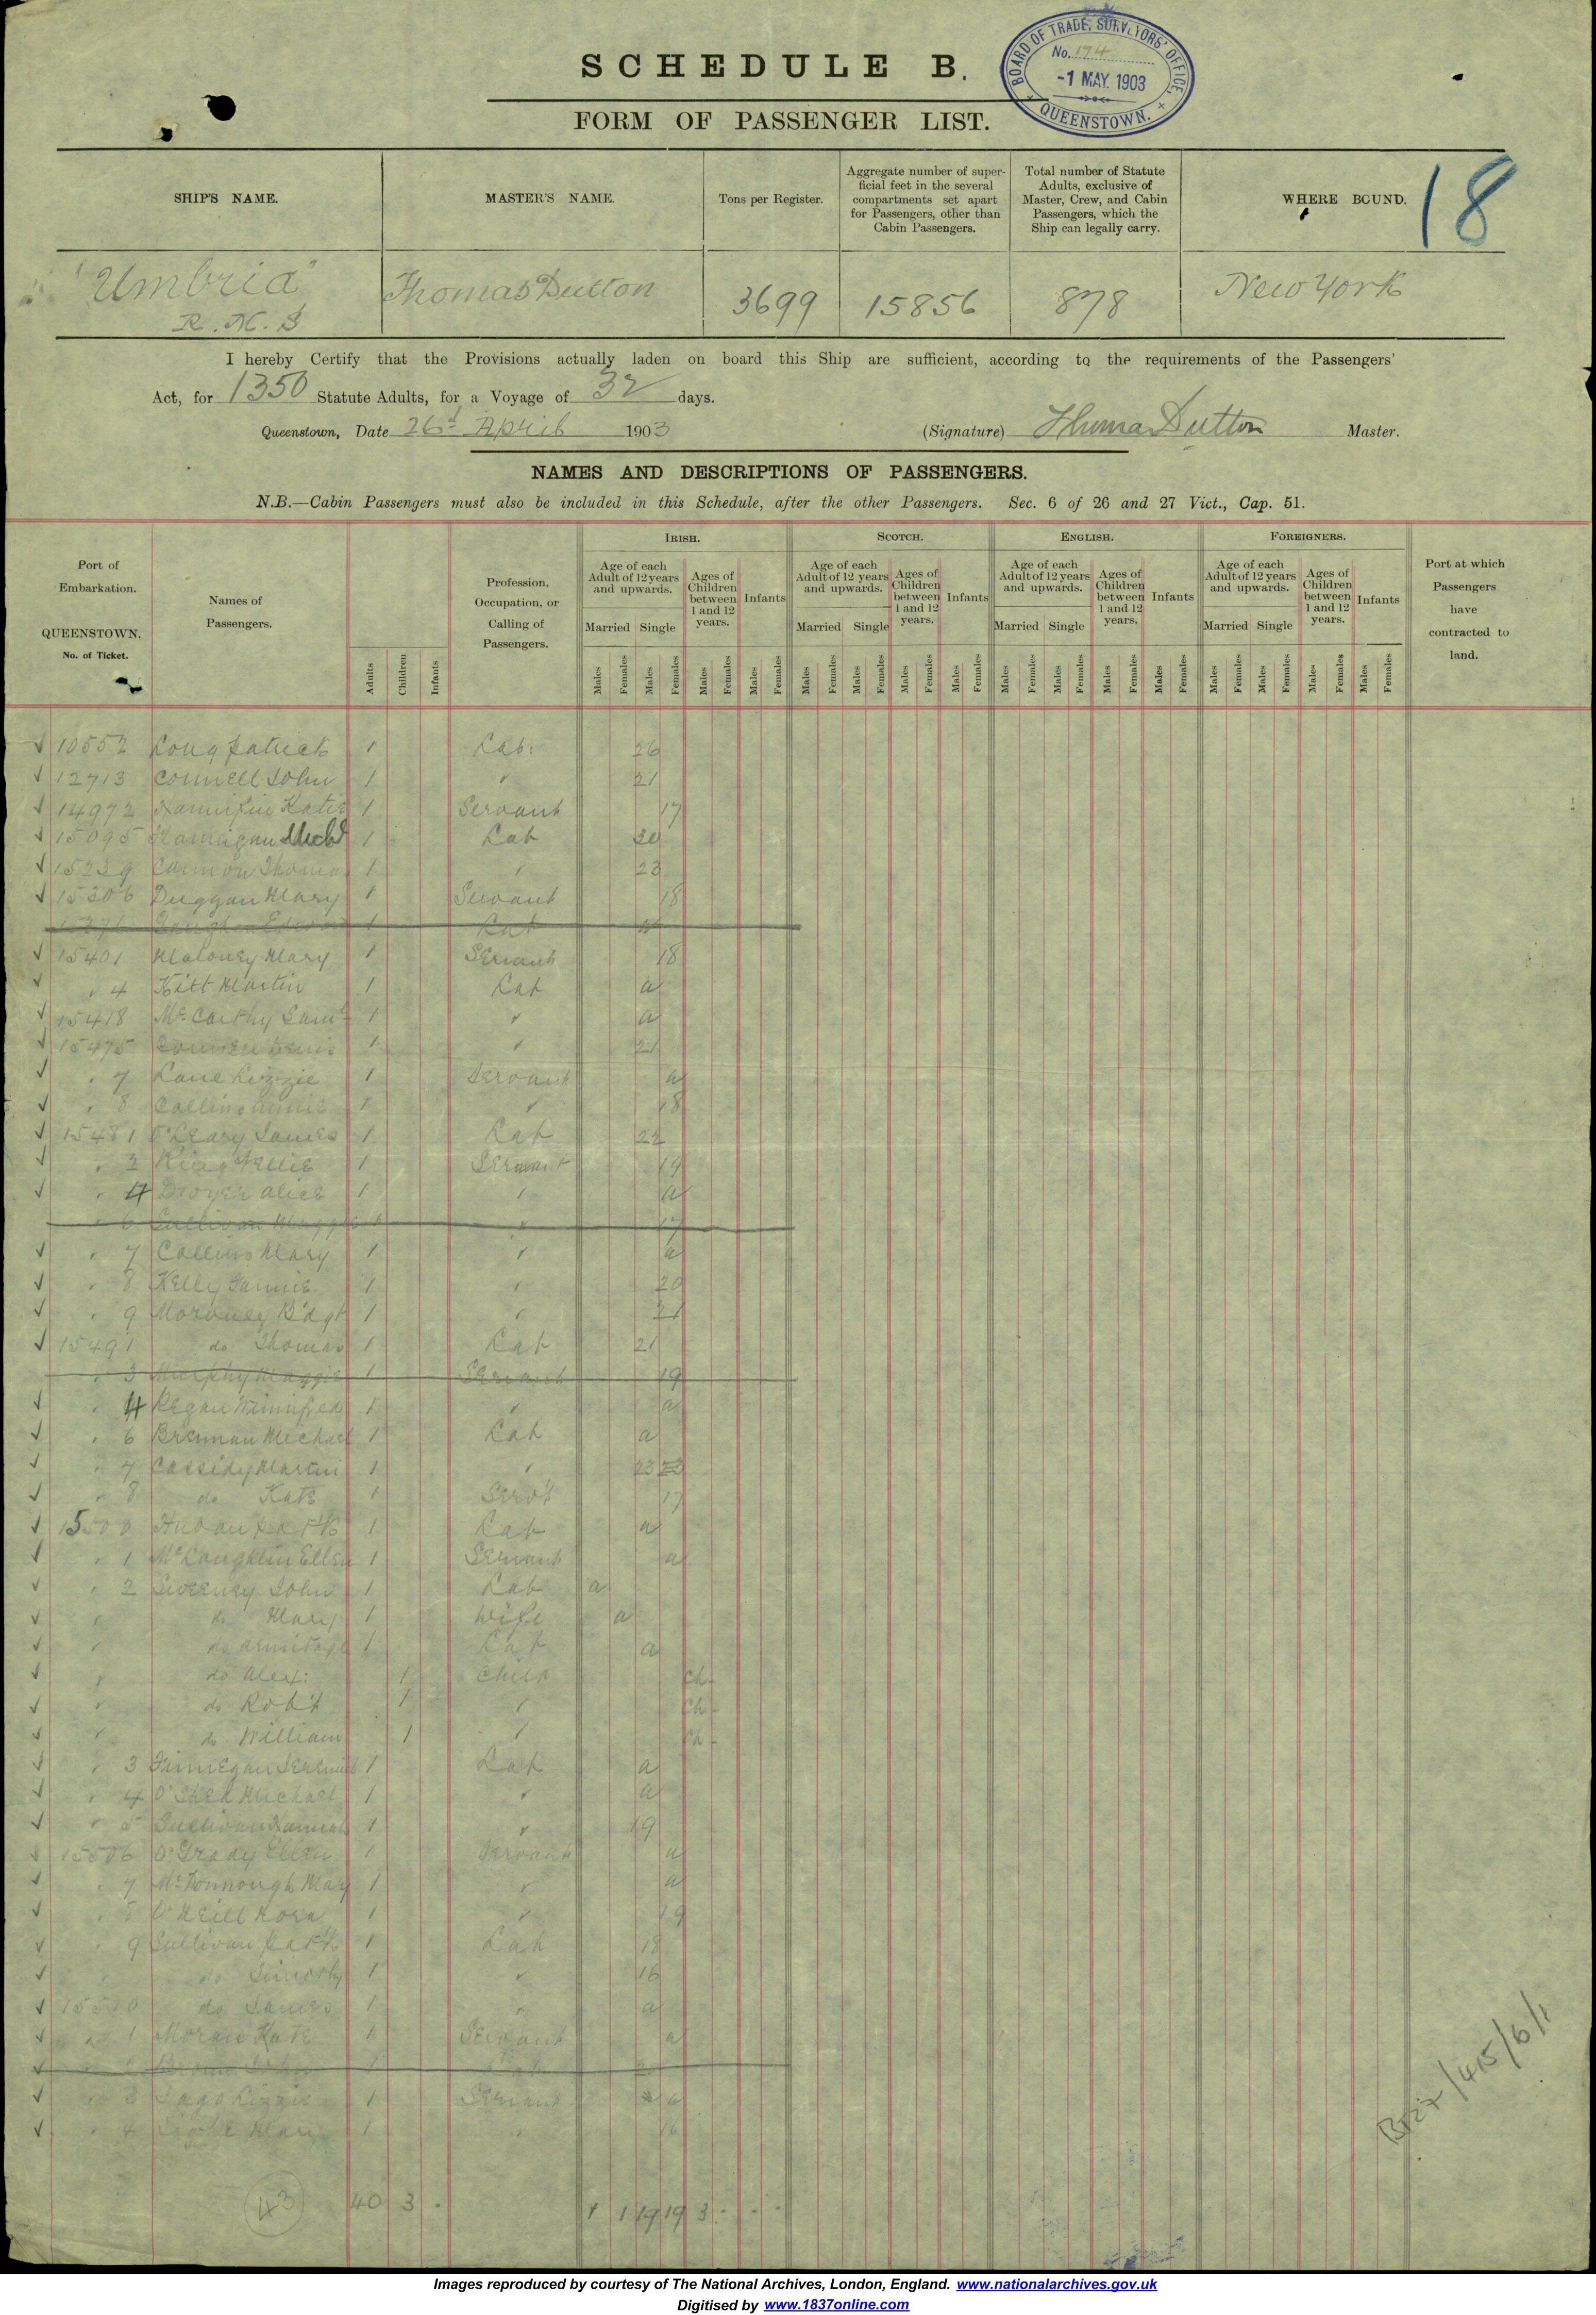 SCHEDULE B.
FORM OF PASSENGER LIST.
BOARD OF TRADE, SURVEYORS' OFFICE,
No. 174
-1 MAY. 1903
QUEENSTOWN.
18
SHIP'S NAME. MASTER'S NAME. Tons per Register. Aggregate number of superficial feet in the several compartments set apart for Passengers, other than Cabin Passengers. Total number of Statute Adults, exclusive of Master, Crew, and Cabin Passengers, which the Ship can legally carry. WHERE BOUND.
"Umbria" Thomas Dutton 3699 15856 878 New York
R.M.S
I hereby Certify that the Provisions actually laden on board this Ship are sufficient, according to the requirements of the Passengers'
Act, for 1350 Statute Adults, for a Voyage of 32 days.
Queenstown, Date 26 April 1903 (Signature) Thomas Dutton Master.
NAMES AND DESCRIPTIONS OF PASSENGERS.
N.B.—Cabin Passengers must also be included in this Schedule, after the other Passengers. Sec. 6 of 26 and 27 Vict., Cap. 51.
Port of Embarkation. QUEENSTOWN. No. of Ticket. Names of Passengers. Adults Children Infants Profession, Occupation, or Calling of Passengers. Port at which Passengers have contracted to land.
IRISH. SCOTCH. ENGLISH. FOREIGNERS.
Age of each Adult of 12 years and upwards. Ages of Children between 1 and 12 years. Infants Age of each Adult of 12 years and upwards. Ages of Children between 1 and 12 years. Infants Age of each Adult of 12 years and upwards. Ages of Children between 1 and 12 years. Infants Age of each Adult of 12 years and upwards. Ages of Children between 1 and 12 years. Infants
Married Single Married Single Married Single Married Single
Males Females Males Females Males Females Males Females Males Females Males Females Males Females Males Females Males Females Males Females Males Females Males Females Males Females Males Females Males Females Males Females
10552 Long Patrick 1 Lab: 26
12713 Connell John 1 " 21
14972 Hannifin Katie 1 Servant 17
15095 Flannigan Michl 1 Lab 30
15239 Cannon Thomas 1 " 23
15306 Duggan Mary 1 Servant 18
1 Lab a
15401 Maloney Mary 1 Servant 18
" 4 Kitt Martin 1 Lab a
15418 McCarthy Saml 1 " a
15475 Denis 1 " 21
" 7 Lane Lizzie 1 Servant a
" 8 Collins Annie 1 " 18
15481 O'Leary James 1 Lab 22
" 2 King Nellie 1 Servant 19
" 4 Dwyer Alice 1 " a
" 6 Sullivan Maggie 1 " 17
" 7 Collins Mary 1 " a
" 8 Kelly Fannie 1 " 20
" 9 Moroney B'dgt 1 " 21
15491 do Thomas 1 Lab 21
" 3 Murphy Maggie 1 Servant 19
" 4 Regan Winnifred 1 " a
" 6 Brennan Michael 1 Lab a
" 7 Cassidy Martin 1 " 23 23
" 8 do Kate 1 Serv't 17
15500 Huban Patk 1 Lab a
" 1 McLoughlin Ellen 1 Servant a
" 2 Sweeney John 1 Lab a
" do Mary 1 Wife a
" do Armitage 1 Lab a
" do Alex: 1 Child Ch-
" do Rob't 1 " Ch-
" do William 1 " Ch-
" 3 Finnegan Jeremiah 1 Lab a
" 4 O'Shea Michael 1 " a
" 5 Sullivan 1 " 19
15506 O'Grady Ellen 1 Servant a
" 7 McDonnough Mary 1 " a
" 8 O'Neill Nora 1 " 19
" 9 Sullivan Patk 1 Lab 18
" do Timothy 1 " 16
15510 do James 1 " a
" 1 Moran Kate 1 Servant a
" 3 Lizzie 1 Servant a
" 4 Mary 1 " 16
43 40 3 - 1 1 19 19 3 - - -
BT27/415/6/1
Images reproduced by courtesy of The National Archives, London, England. www.nationalarchives.gov.uk
Digitised by www.1837online.com